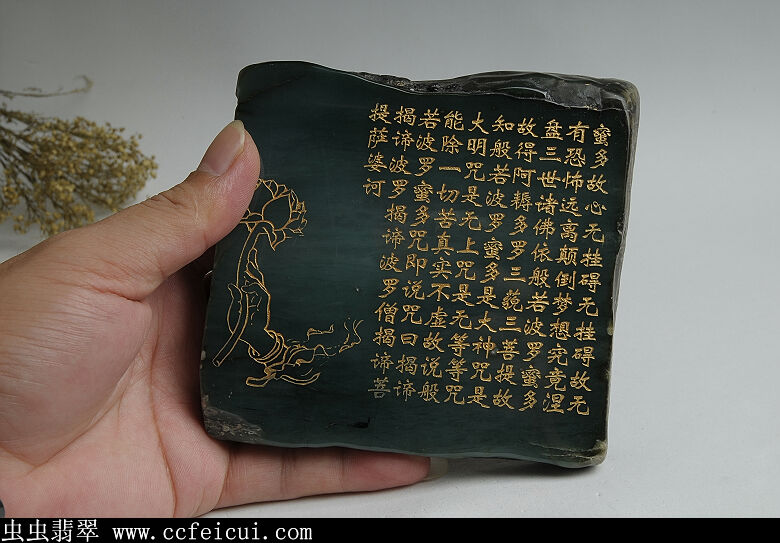 蜜多故心无挂碍无挂碍故无
有恐怖远离颠倒梦想究竟涅
盘三世诸佛依般若波罗蜜多
故得阿耨多罗三藐三菩提故
知般若波罗蜜多是大神咒是
大明咒是无上咒是无等等咒
能除一切苦真实不虚故说般
若波罗蜜多咒即说咒曰揭谛
揭谛波罗揭谛波罗僧揭谛菩
提萨婆诃
虫虫翡翠 www.ccfeicui.com